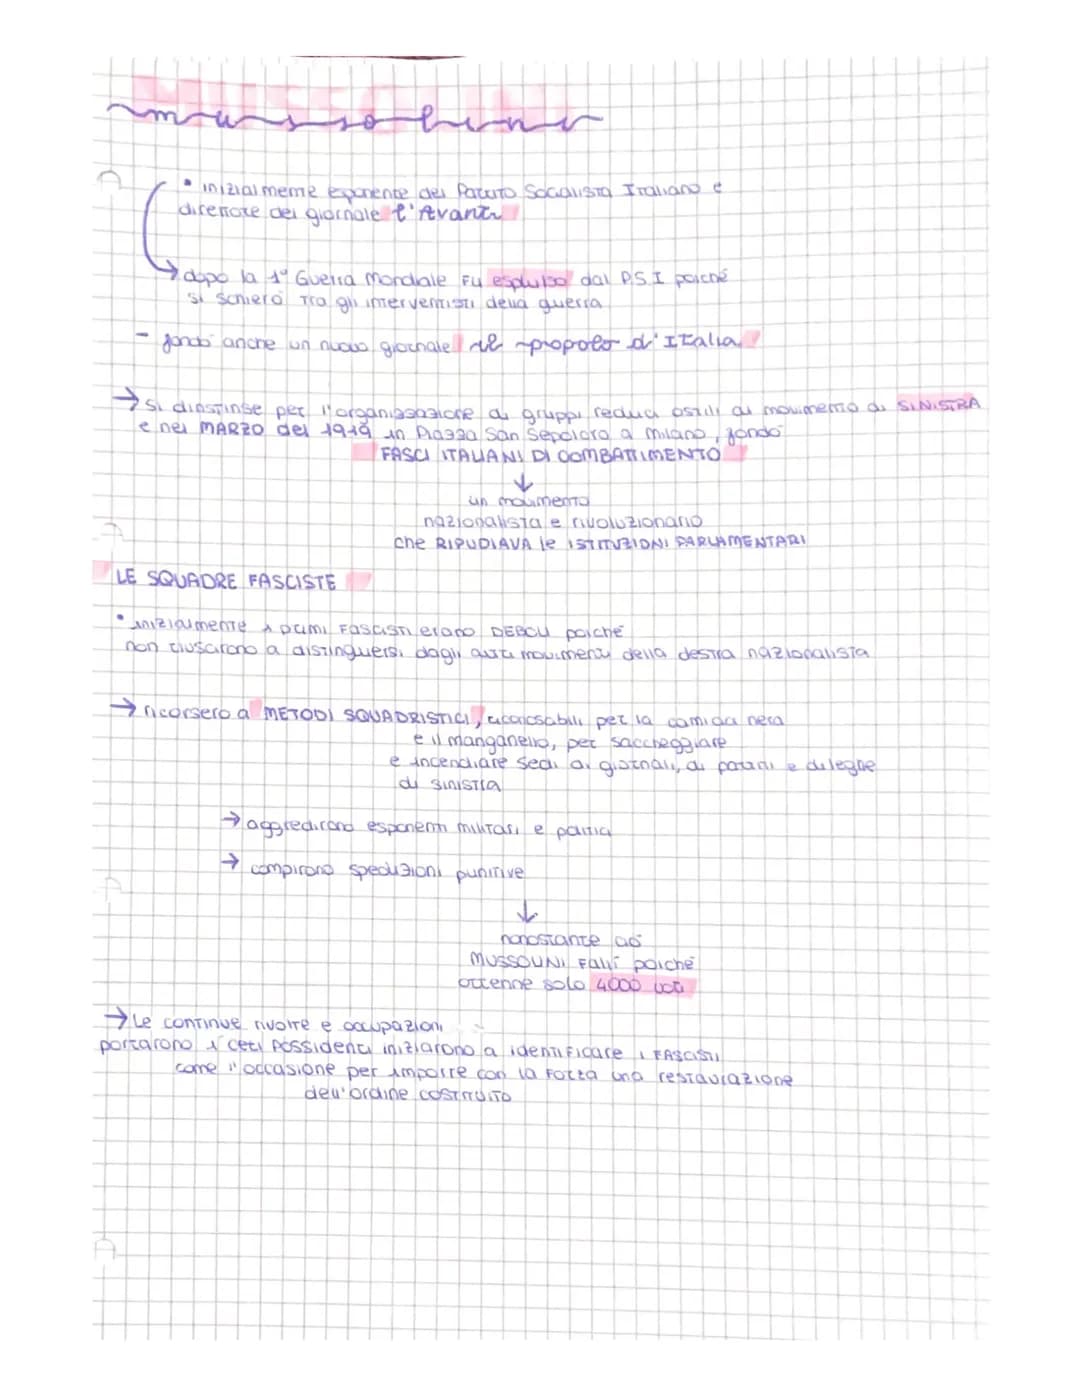 MUSSOLINI
mussolini
• inizialmente esponente del Partito Socialista Italiano e
direttore del giornale l'Avanti
→ dopo la 1ª Guerra Mondiale Fu espulso dal P.S.I poiché
si schierò tra gli interventisti della guerra
- fondò anche un nuovo giornale il popolo d'Italia
→ si dinstinse per l'organizzazione di gruppi reduci ostili al movimento di SINISTRA
e nel MARZO del 1919 in Piazza San Sepolcro a Milano, fondò
FASCI ITALIANI DI COMBATTIMENTO
↓
un movimento
nazionalista e rivoluzionario
che RIPUDIAVA le ISTITUZIONI PARLAMENTARI
LE SQUADRE FASCISTE
• inizialmente i primi FASCISTI erano DEBOLI poiché
non riuscirono a distinguersi dagli altri movimenti della destra nazionalista
→ ricorsero a METODI SQUADRISTICI, riconoscibili per la camicia nera
e il manganello, per saccheggiare
e incendiare sedi di giornali, di partiti e di leghe
di sinistra
→ aggredirono esponenti militari e politici
→ compirono spedizioni punitive
↓
nonostante ciò
MUSSOLINI Fallì poiché
ottenne solo 4000 voti
→ Le continue rivolte e occupazioni
portarono i ceti possidenti iniziarono a identificare i FASCISTI
come l'occasione per imporre con la Forza una restaurazione
dell'ordine COSTITUITO